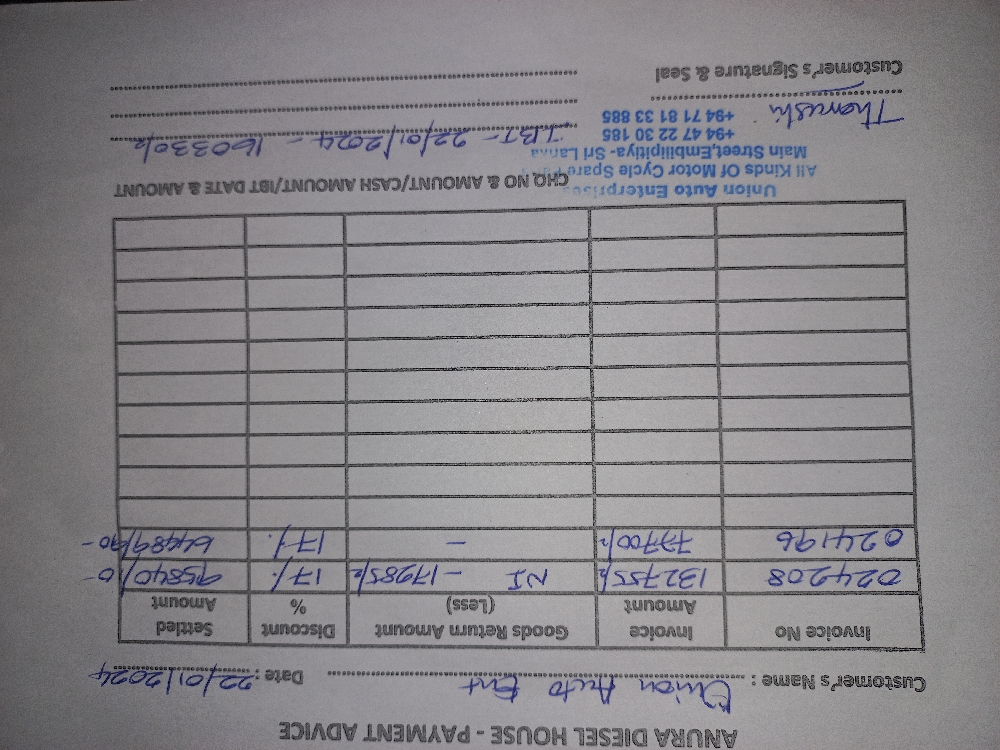 ANURA DIESEL HOUSE - PAYMENT ADVICE
Customer's Name : Union Auto Ent Date : 22/01/2024
Invoice No Invoice Amount Goods Return Amount (Less) Discount % Settled Amount
024208 132755/= NI - 17285/= 17% 95840/10-
024196 77700/= - 17% 64489/90-
Union Auto Enterprises
All Kinds Of Motor Cycle Spare
Main Street, Embilipitiya- Sri Lanka
+94 47 22 30 185
+94 71 81 33 885
CHQ. NO & AMOUNT/CASH AMOUNT/IBT DATE & AMOUNT
IBT - 22/01/2024 - 160330/=
Tharushi
Customer's Signature & Seal